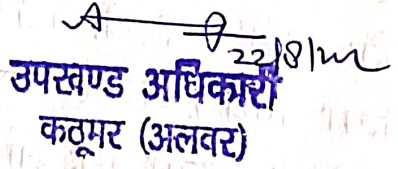 22/8/22
उपखण्ड अधिकारी
कठूमर (अलवर)